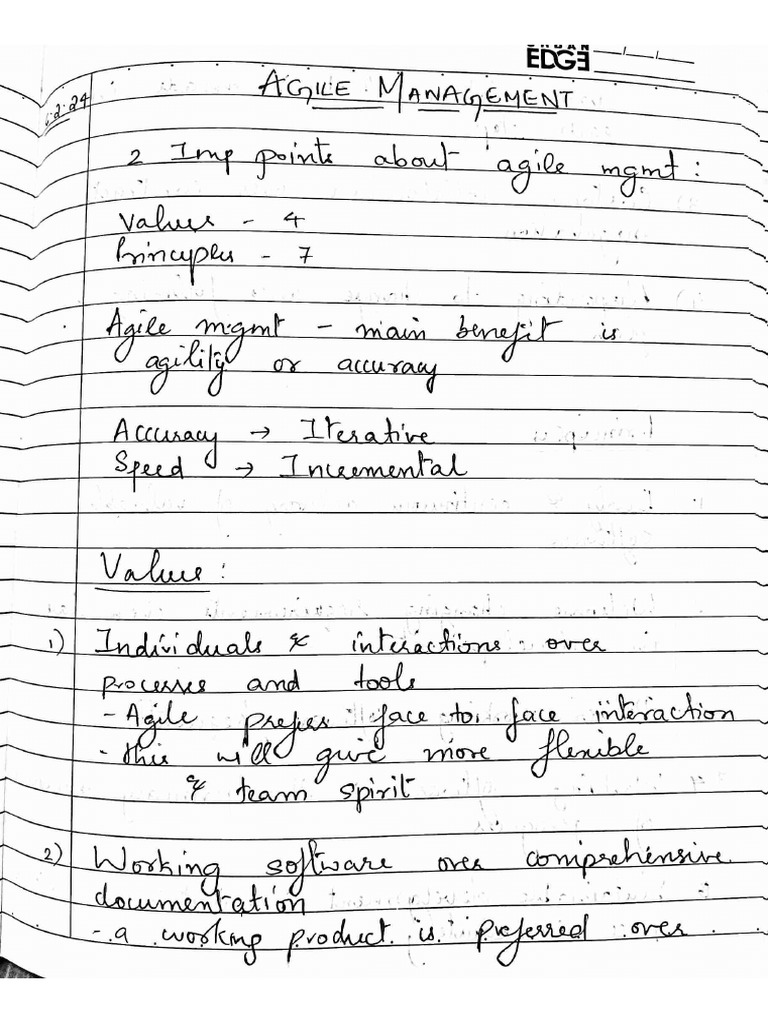 EDGE
AGILE MANAGEMENT
2.24
2 Imp points about agile mgmt:
Values - 4
Principles - 7
Agile mgmt - main benefit is
agility or accuracy
Accuracy → Iterative
Speed → Incremental
Values:
1) Individuals & interactions over
processes and tools
- Agile prefers face to face interaction
- this will give more flexible
& team spirit
2) Working software over comprehensive
documentation
- a working product is preferred over